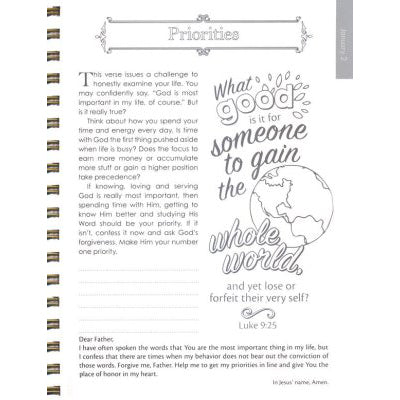 Priorities
January 2
This verse issues a challenge to
honestly examine your life. You
may confidently say, "God is most
important in my life, of course." But
is it really true?
Think about how you spend your
time and energy every day. Is time
with God the first thing pushed aside
when life is busy? Does the focus to
earn more money or accumulate
more stuff or gain a higher position
take precedence?
If knowing, loving and serving
God is really most important, then
spending time with Him, getting to
know Him better and studying His
Word should be your priority. If it
isn't, confess it now and ask God's
forgiveness. Make Him your number
one priority.
What
good
is it for
someone
to gain
the
whole
world,
and yet lose or
forfeit their very self?
Luke 9:25
Dear Father,
I have often spoken the words that You are the most important thing in my life, but
I confess that there are times when my behavior does not bear out the conviction of
those words. Forgive me, Father. Help me to get my priorities in line and give You the
place of honor in my heart.
In Jesus' name, Amen.